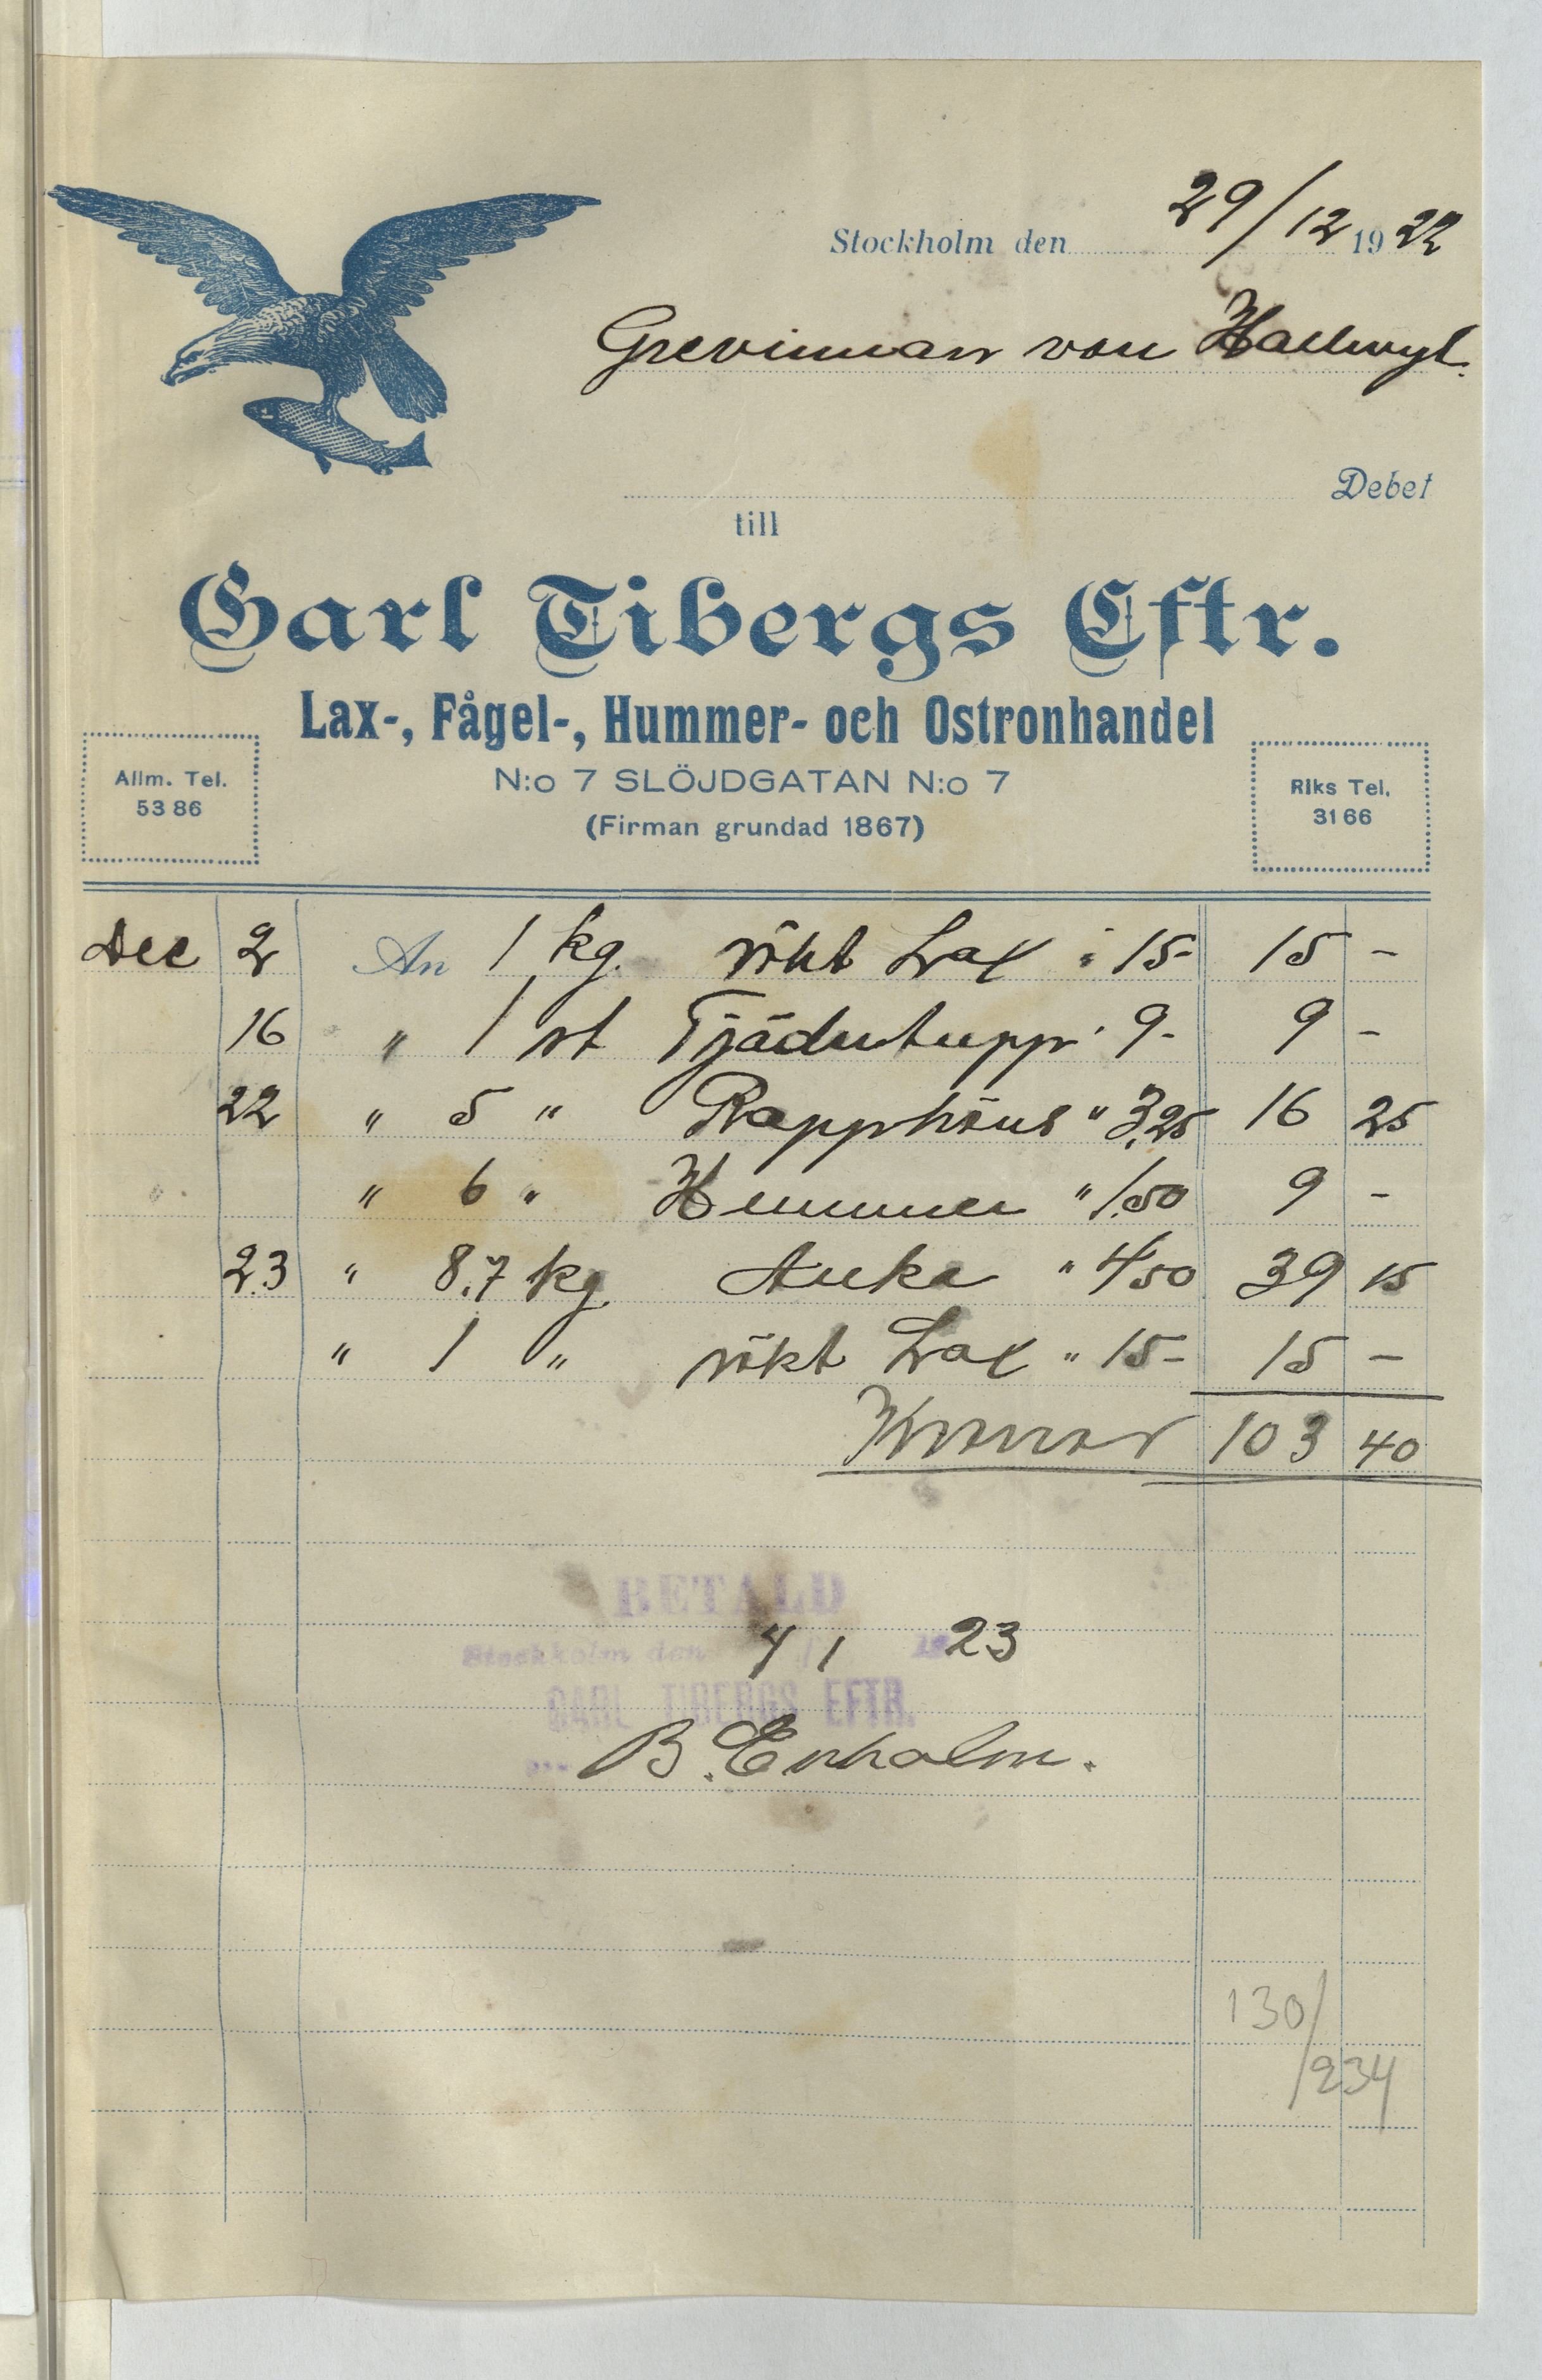 Stockholm den 29/12 1922
Grevinnan von Hallwyl.
Debet
till
Carl Tibergs Eftr.
Lax-, Fågel-, Hummer- och Ostronhandel
N:o 7 SLÖJDGATAN N:o 7
(Firman grundad 1867)
Allm. Tel.
53 86
Riks Tel.
31 66
Dec 2 An 1 kg. rökt Lax : 15- 15 -
16 " 1 st Tjädertupp " 9- 9 -
22 " 5 " Rapphöns " 3,25 16 25
" 6 " Hummer " 1.50 9 -
23 " 8.7 kg " 4 50 39 15
" 1 " rökt Lax " 15- 15 -
Kronor 103 40
BETALD
Stockholm den 4/1 1923
CARL TIBERGS EFTR.
B. Enholm.
130/
/234